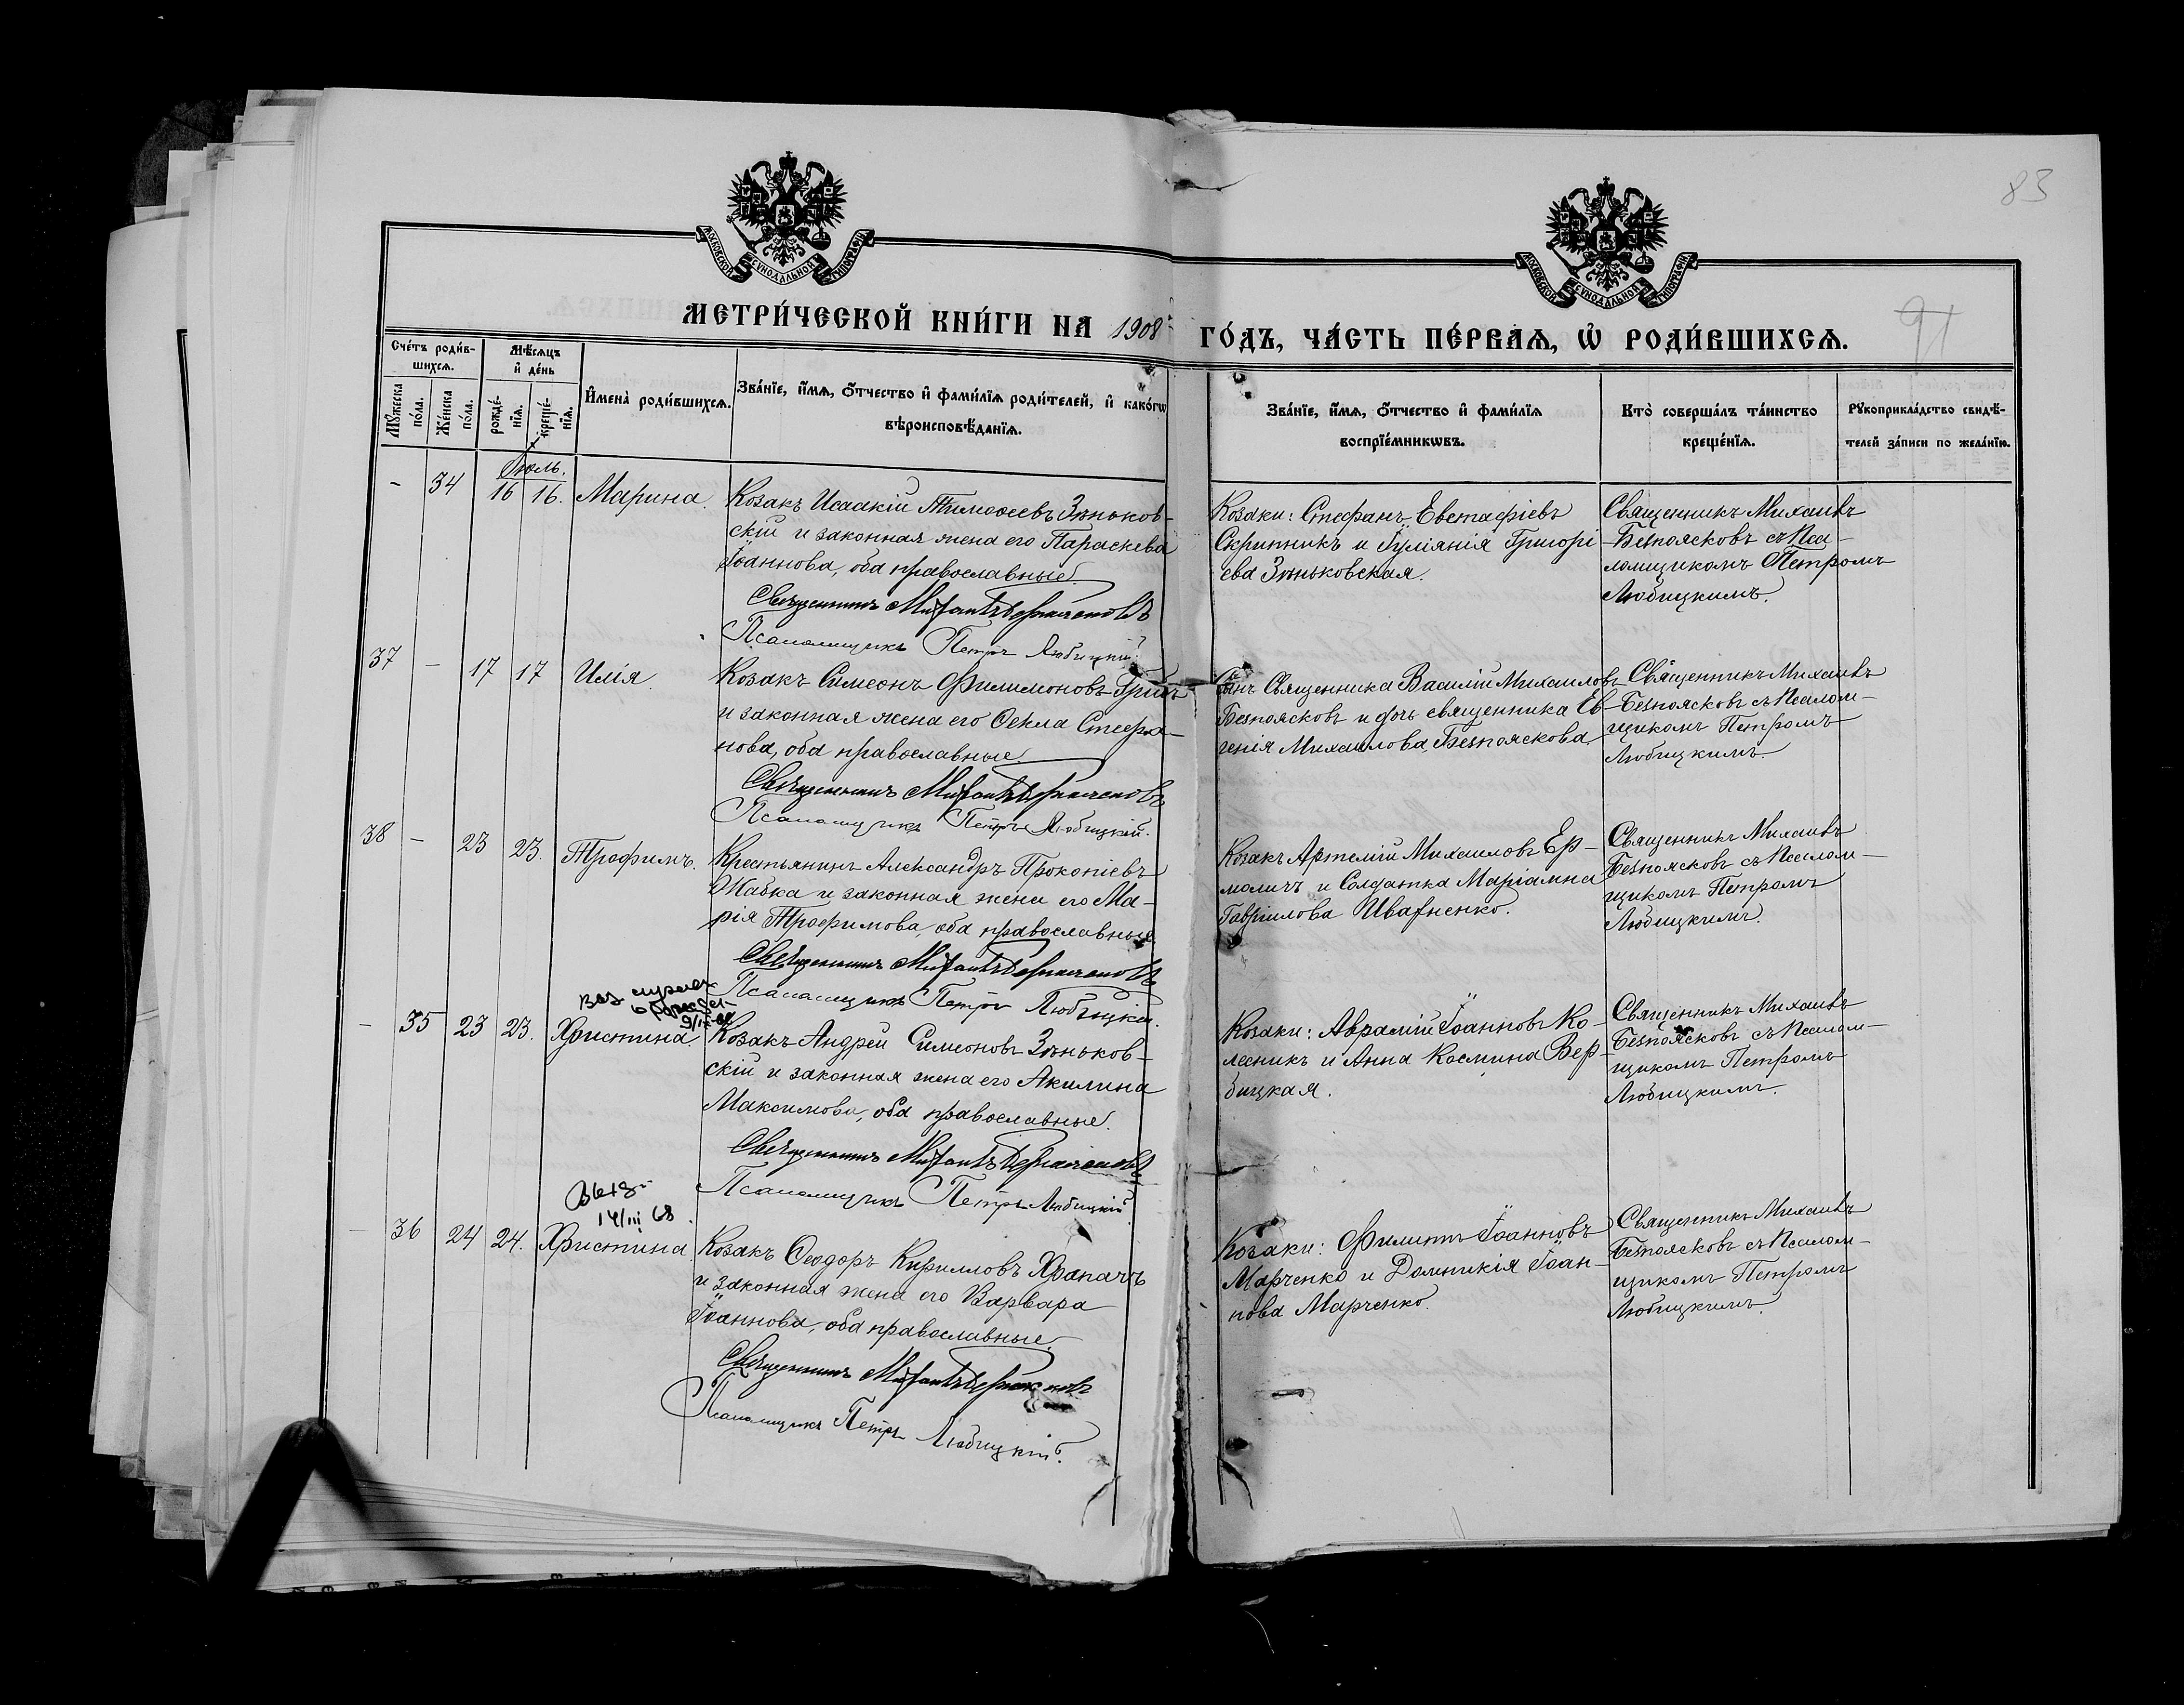 83
91
МОСКОВСКОЙ СУНОДАЛЬНОЙ ТИПОГРАФІИ
МОСКОВСКОЙ СУНОДАЛЬНОЙ ТИПОГРАФІИ
МЕТРИ́ЧЕСКОЙ КНИ́ГИ НА 1908 ГО́ДЪ, ЧА́СТЬ ПЕ́РВАѦ, Ѡ҆ РОДИ́ВШИХСѦ.
Сче́тъ роди́в-
шихсѧ.
Мꙋ́жеска по́ла.
Же́нска по́ла.
Мѣ́сѧцъ
и҆ де́нь
рожде́-
нїѧ.
креще́-
нїѧ.
И҆мена̀ роди́вшихсѧ.
Зва́нїе, и҆́мѧ, ѻ҆́тчество и҆ фами́лїѧ роди́телей, и҆ како́гѡ
вѣроисповѣ́данїѧ.
Зва́нїе, и҆́мѧ, ѻ҆́тчество и҆ фами́лїѧ
воспрїе́мникѡвъ.
Кто̀ соверша́лъ та́инство
креще́нїѧ.
Рꙋкоприкла́дство свидѣ́-
телей за́писи по жела́нїю.
Іюль.
- 34 16 16. Марина.
Козакъ Исаакій Тимоѳеевъ Зѣньков-
скій и законная жена его Параскева
Іоаннова, оба православные.
Священникъ Михаилъ Безпоясковъ
Псаломщикъ Петръ Любицкій.
Козаки: Стефанъ Евстафіевъ
Скрипникъ и Іуліянія Григорі-
ева Зѣньковская.
Священникъ Михаилъ
Безпоясковъ съ Пса-
ломщикомъ Петромъ
Любицкимъ.
37 - 17 17 Илія.
Козакъ Симеонъ Филимоновъ
и законная жена его Ѳекла Стефа-
нова, оба православные.
Священникъ Михаилъ Безпоясковъ
Псаломщикъ Петръ Любицкій.
Сынъ Священника Василій Михаиловъ
Безпоясковъ и дочь священника Ев-
генія Михаилова Безпояскова.
Священникъ Михаилъ
Безпоясковъ съ Псалом-
щикомъ Петромъ
Любицкимъ.
38 - 23 23. Трофимъ.
Крестьянинъ Александръ Прокопіевъ
Жабка и законная жена его Ма-
рія Трофимова, оба православные.
Священникъ Михаилъ Безпоясковъ
Псаломщикъ Петръ Любицкій.
Козакъ Артемій Михаиловъ Ер-
моличъ и Солдатка Маріамна
Гавріилова Ивахненко.
Священникъ Михаилъ
Безпоясковъ съ Псалом-
щикомъ Петромъ
Любицкимъ.
- 35 23 23. Христина.
Козакъ Андрей Симеоновъ Зѣньков-
скій и законная жена его Акилина
Максимова, оба православные.
Священникъ Михаилъ Безпоясковъ
Псаломщикъ Петръ Любицкій
Козаки: Аврамій Іоанновъ Ко-
лесникъ и Анна Космина Вер-
бицкая.
Священникъ Михаилъ
Безпоясковъ съ Псалом-
щикомъ Петромъ
Любицкимъ.
14/III 68
- 36 24 24. Христина.
Козакъ Ѳеодоръ Кирилловъ Храпачъ
и законная жена его Варвара
Іоаннова, оба православные.
Священникъ Михаилъ Безпоясковъ
Псаломщикъ Петръ Любицкій.
Козаки: Филиппъ Іоанновъ
Марченко и Домникія Іоан-
нова Марченко.
Священникъ Михаилъ
Безпоясковъ съ Псалом-
щикомъ Петромъ
Любицкимъ.